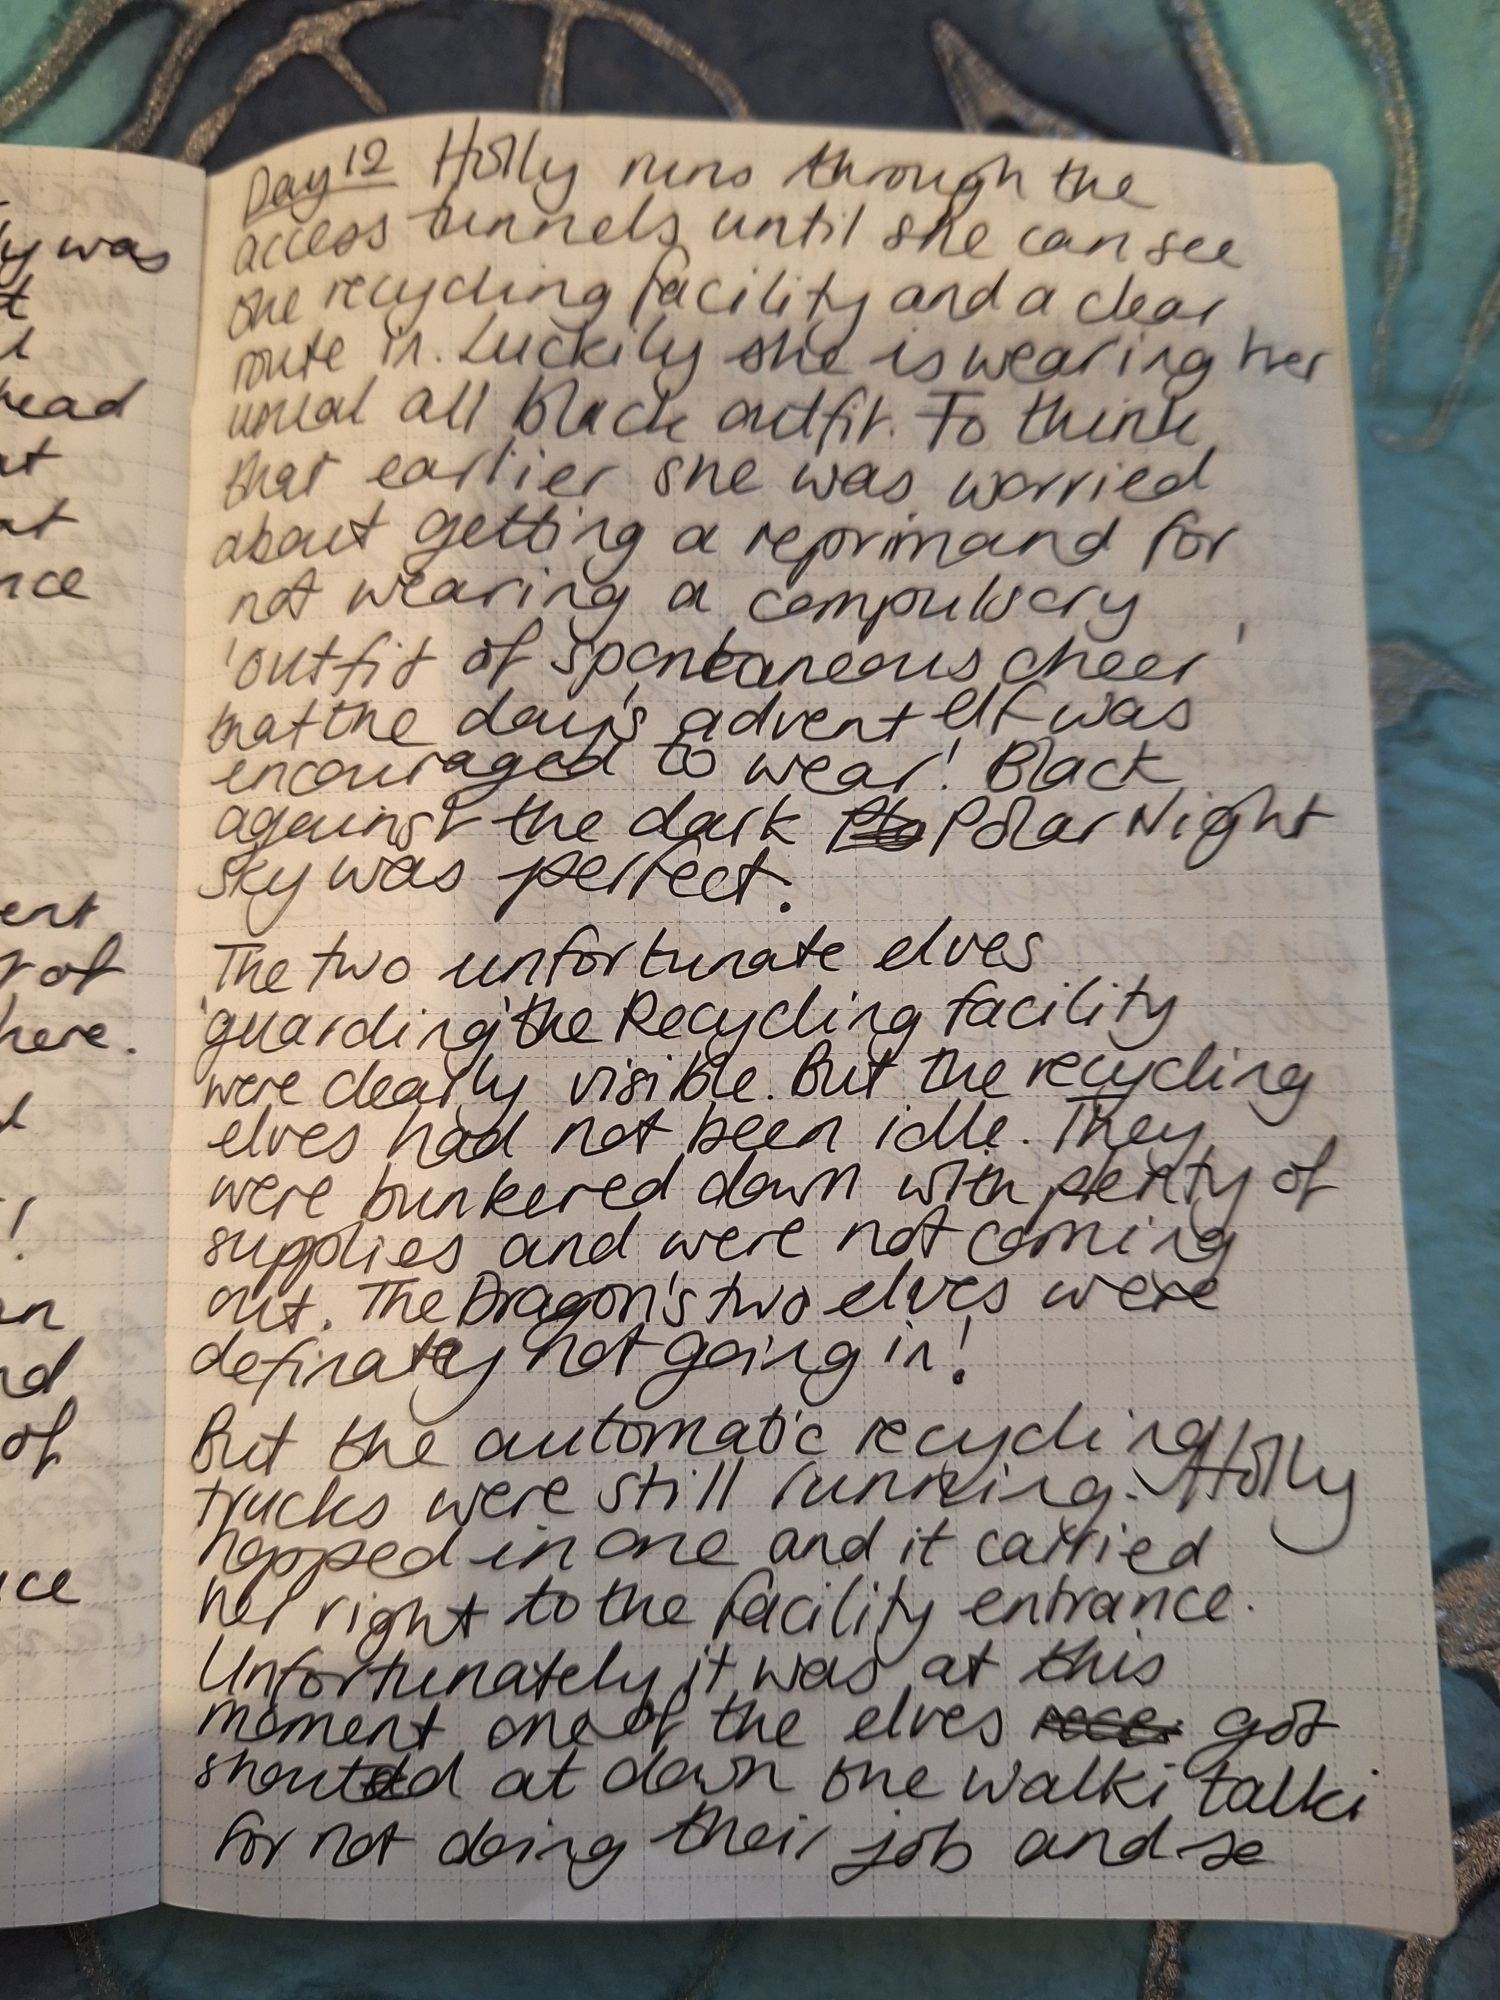 y was
t
l
head
at
at
nce
ent
r of
here.
l
!
an
nd
of
ice
Day 12 Holly runs through the
access tunnels until she can see
the recycling facility and a clear
route in. Luckily she is wearing her
usual all black outfit. To think
that earlier she was worried
about getting a reprimand for
not wearing a compulsory
'outfit of spontaneous cheer'
that the day's advent elf was
encouraged to wear! Black
against the dark Polar Night
sky was perfect.
The two unfortunate elves
'guarding' the Recycling facility
were clearly visible. But the recycling
elves had not been idle. They
were bunkered down with plenty of
supplies and were not coming
out. The Dragon's two elves were
definately not going in!
But the automatic recycling
trucks were still running. Holly
hopped in one and it carried
her right to the facility entrance.
Unfortunately it was at this
moment one of the elves got
shouted at down the walki talki
for not doing their job and so